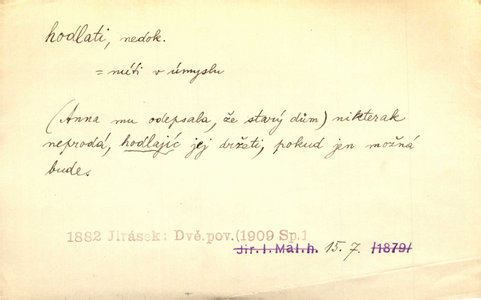 hodlati, nedok.
= míti v úmyslu
(Anna mu odepsala, že starý dům) nikterak
neprodá, hodlajíc jej držeti, pokud jen možná
bude.
1882 Jirásek: Dvě.pov.(1909 Sp.1
Jir.I.Mal.h. 15. 7. /1879/